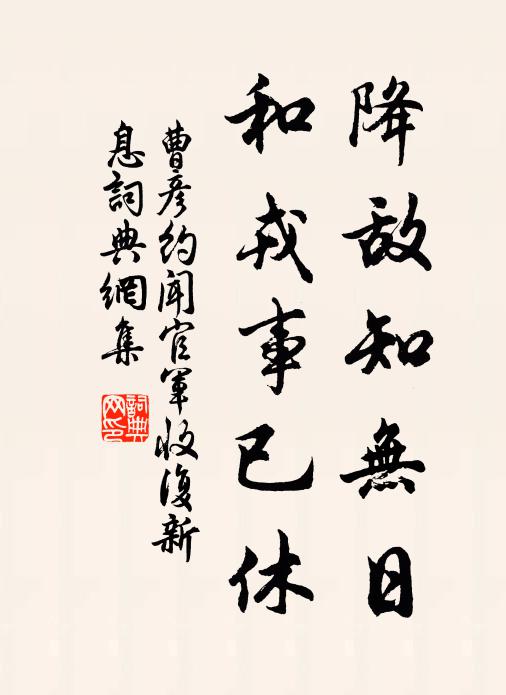 降敌知無日
和戎事已休
曹彦約聞官軍收復新
息詞典網集
詞典网印